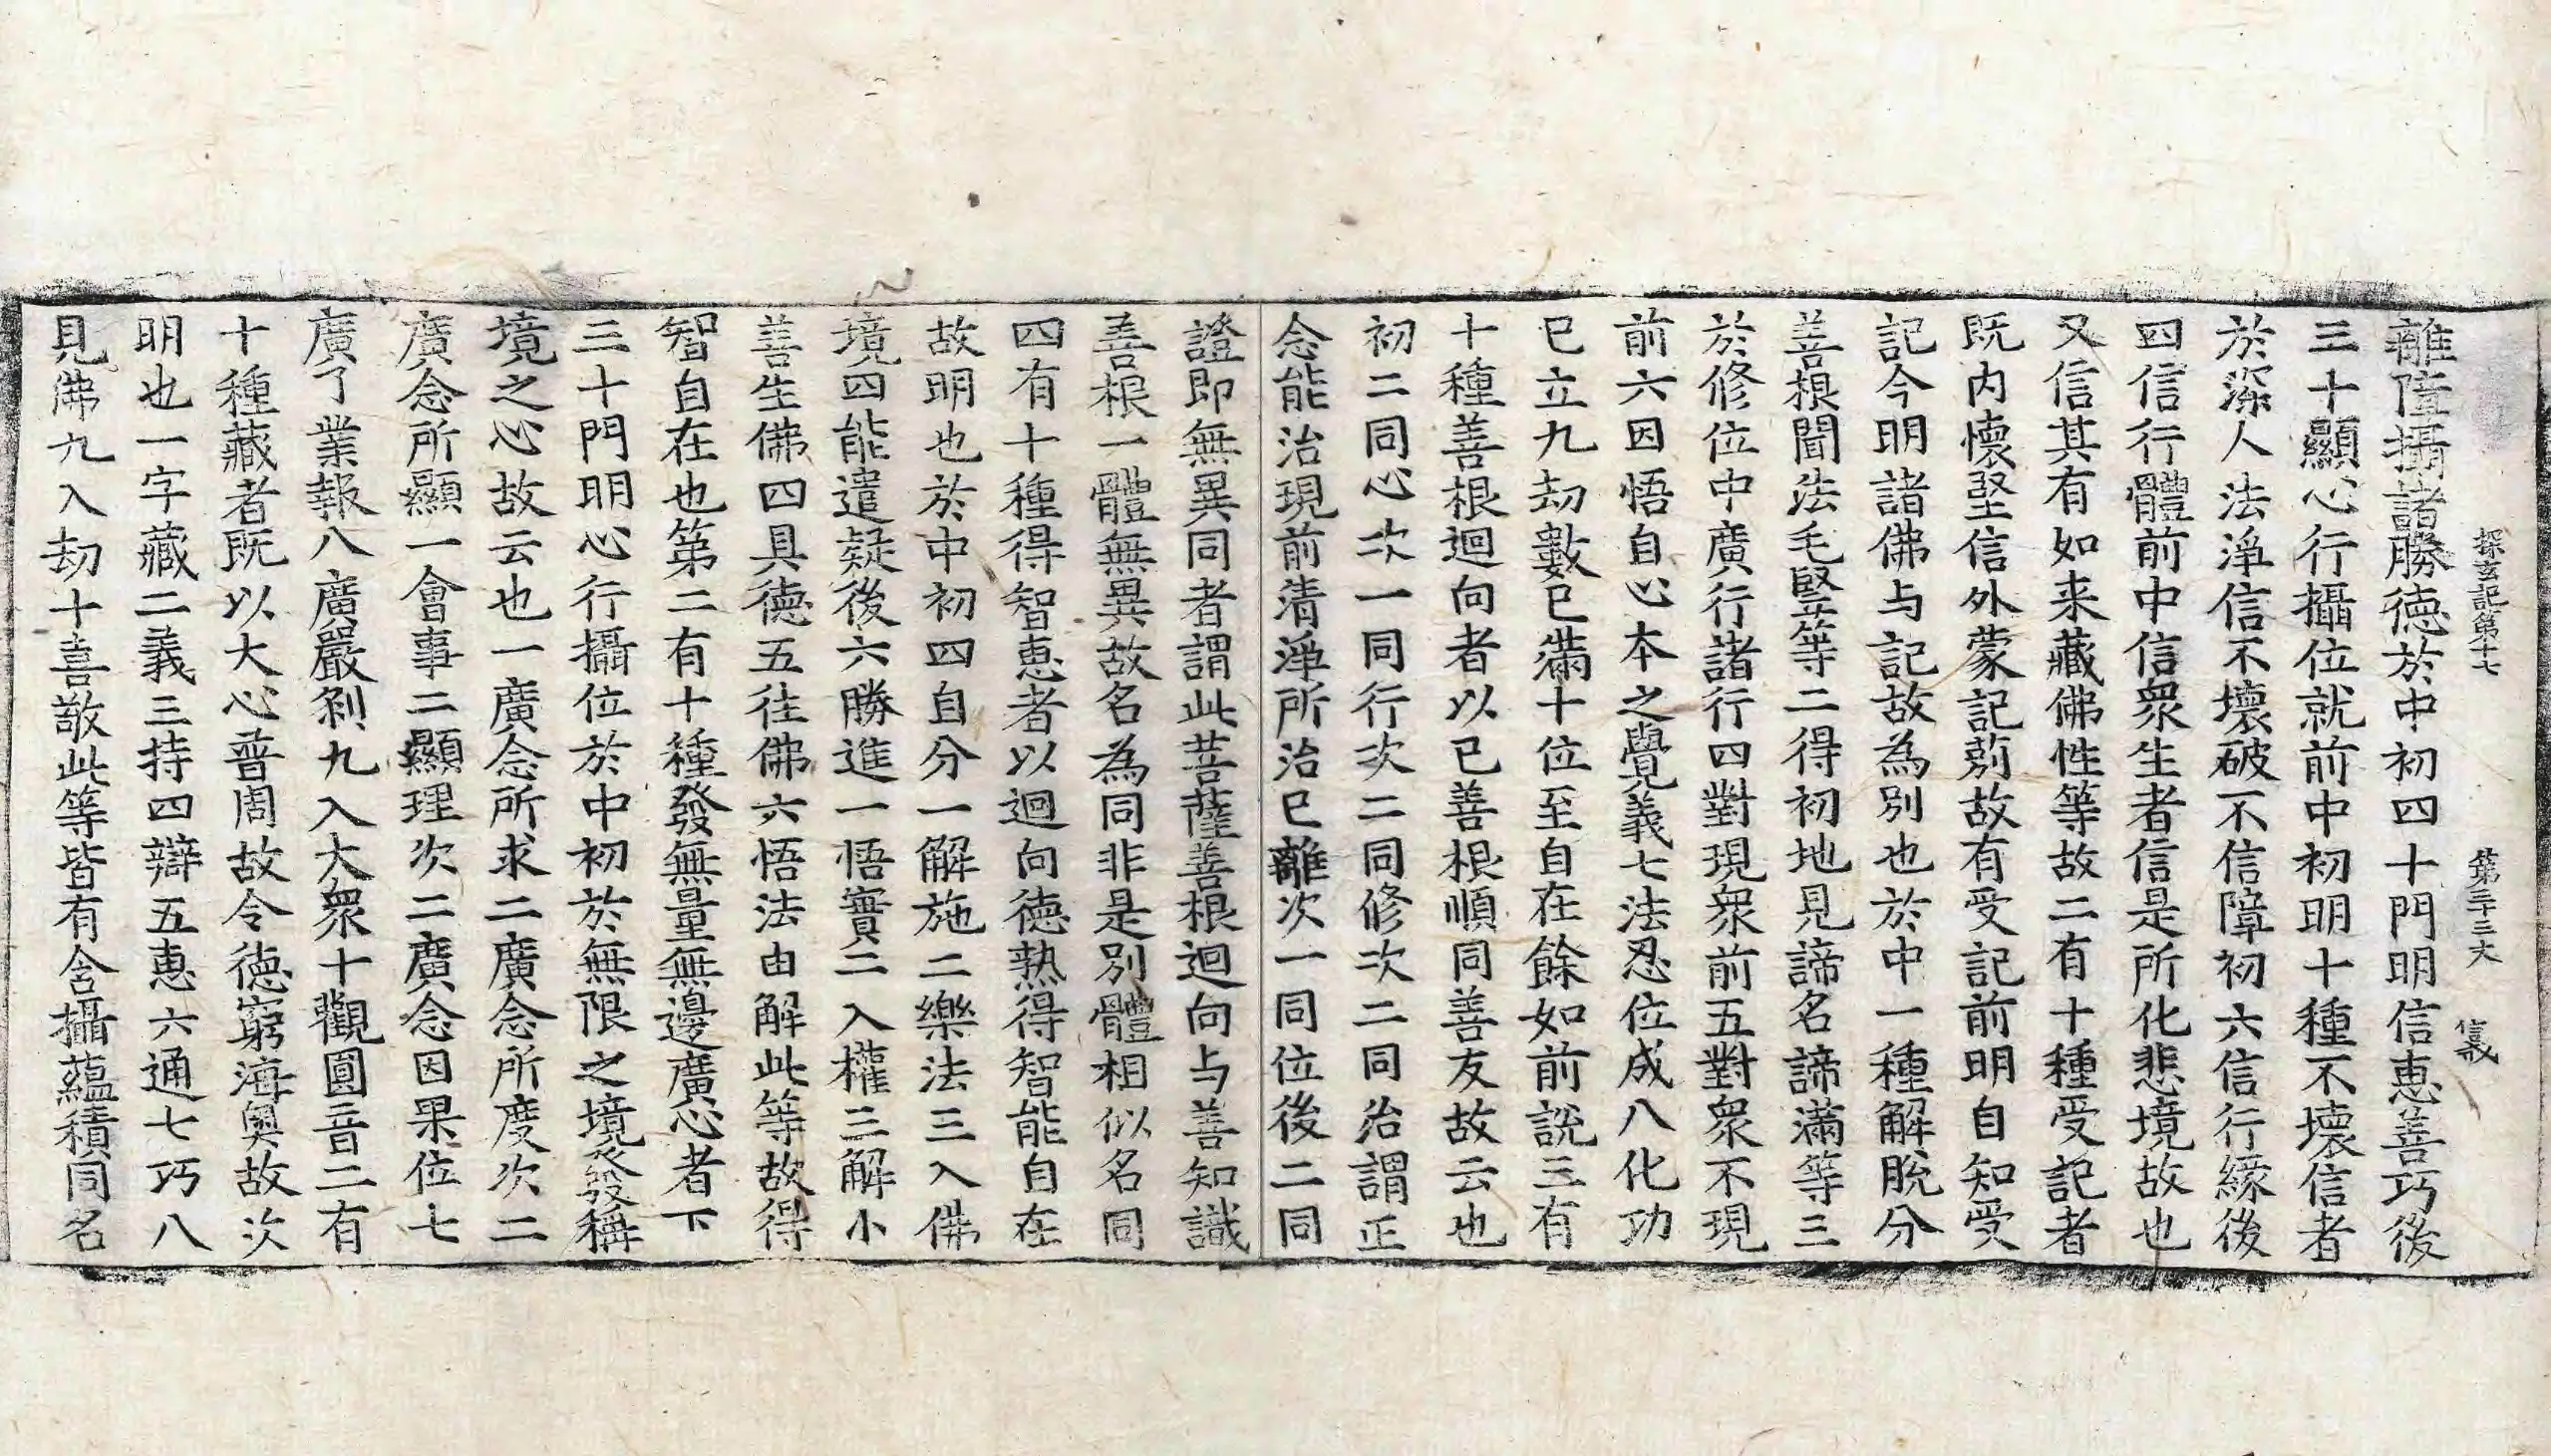 探玄記第十七　第三十三丈　㠭
離障攝諸勝德於中初四十門明信恵善巧後
三十顯心行攝位就前中初明十種不壞信者
於深人法淨信不壞破不信障初六信行緣後
四信行體前中信衆生者信是所化悲境故也
又信其有如来藏佛性等故二有十種受記者
既内懷堅信外蒙記莂故有受記前明自知受
記今明諸佛与記故為別也於中一種解脫分
善根聞法毛竪等二得初地見諦名諦滿等三
於修位中廣行諸行四對現衆前五對衆不現
前六因悟自心本之覺義七法忍位成八化功
已立九劫數已滿十位至自在餘如前說三有
十種善根迴向者以已善根順同善友故云也
初二同心次一同行次二同修次二同治謂正
念能治現前清淨所治已離次一同位後二同
證即無異同者謂此菩薩善根迴向与善知識
善根一體無異故名為同非是別體相似名同
四有十種得智恵者以迴向德熟得智能自在
故明也於中初四自分一解施二樂法三入佛
境四能遣疑後六勝進一悟實二入權三解小
善生佛四具德五往佛六悟法由解此等故得
智自在也第二有十種發無量無邊廣心者下
三十門明心行攝位於中初於無限之境發發稱
境之心故云也一廣念所求二廣念所度次二
廣念所顯一會事二顯理次二廣念因果位七
廣了業報八廣嚴刹九入大衆十觀圓音二有
十種藏者既以大心普周故令德窮海奥故次
明也一字藏二義三持四辯五恵六通七巧八
見佛九入劫十喜敬此等皆有含攝蘊積同名